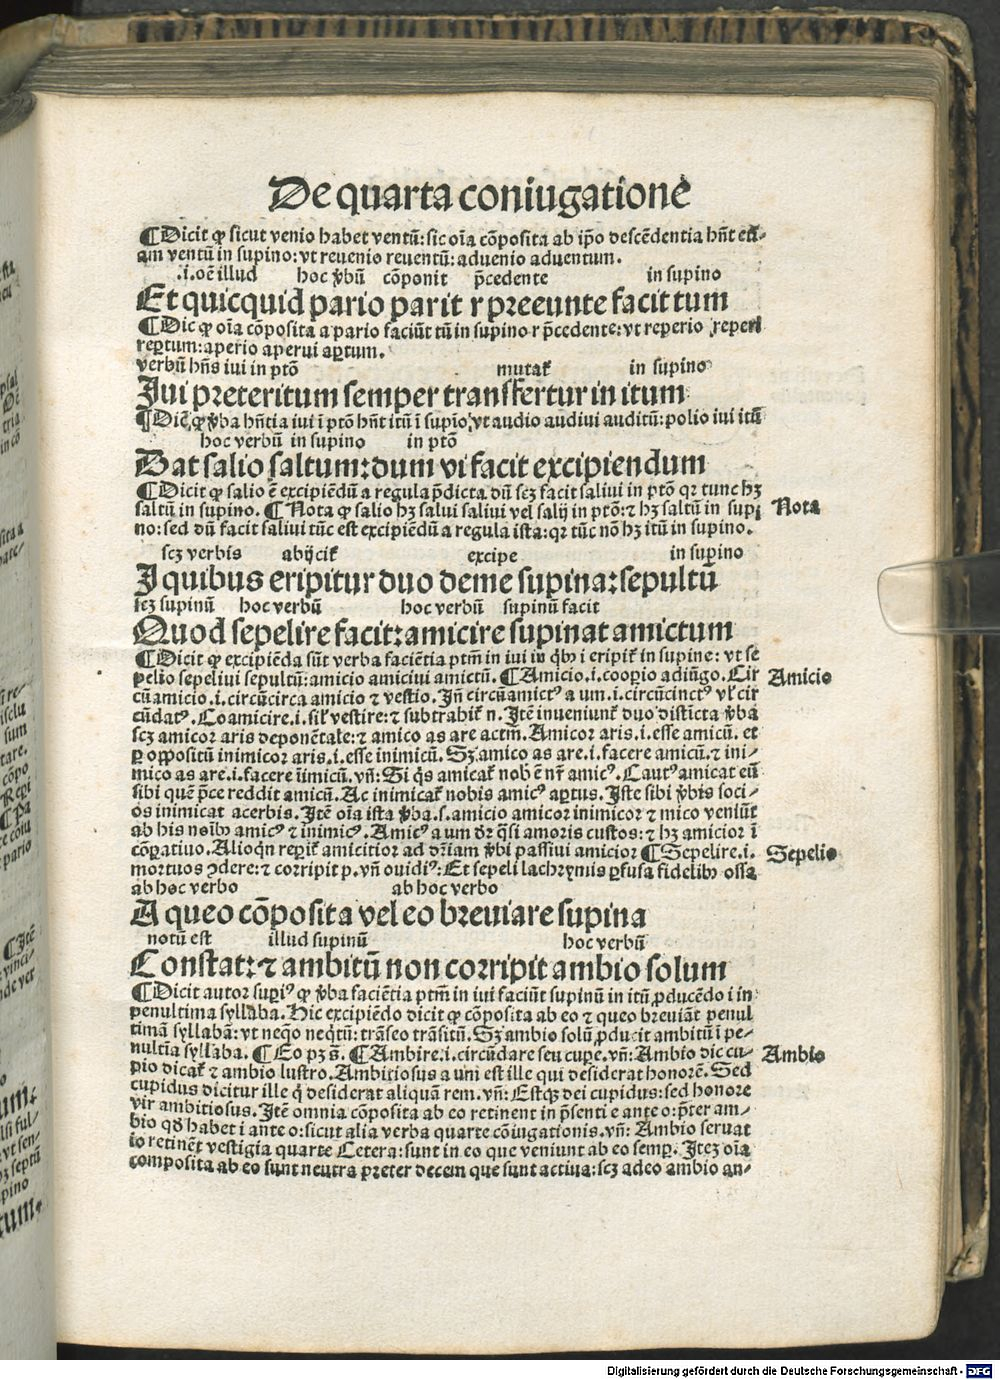 De quarta coniugatione
¶Dicit ꝙ sicut venio habet ventū: sic oīa cōposita ab ip̄o descēdentia hn̄t eti-
am ventū in supino: vt reuenio reuentū: aduenio aduentum.
.i. oē illud hoc v̄bū cōponit p̄cedente in supino
Et quicquid pario parit r preeunte facit tum
¶Dic ꝙ oīa cōposita a pario faciūt tū in supino r p̄cedente: vt reperio reperi
reꝑtum: aperio aperui aꝑtum.
verbū hn̄s iui in p̄tō mutat̄ in supino
Iui preteritum semper transfertur in itum
¶Dic̄ ꝙ v̄ba hn̄tia iui ī p̄tō hn̄t itū ī supīo, vt audio audiui auditū: polio iui itū
hoc verbū in supino in p̄tō
Dat salio saltum: dum vi facit excipiendum
¶Dicit ꝙ salio ē excipiēdū a regula p̄dicta dū scꝫ facit saliui in p̄tō qꝛ tunc hꝫ
saltū in supino. ¶Nota ꝙ salio hꝫ salui saliui vel salij in p̄tō: ⁊ hꝫ saltū in supi
Nota
no: sed dū facit saliui tūc est excipiēdū a regula ista: qꝛ tūc nō hꝫ itū in supino.
scꝫ verbis abijcit̄ excipe in supino
I quibus eripitur duo deme supina: sepultū
scꝫ supinū hoc verbū hoc verbū supinū facit
Quod sepelire facit: amicire supinat amictum
¶Dicit ꝙ excipiēda sūt verba faciētia p̄tm̄ in iui in qͥbꝫ i eripit̄ in supine: vt se
pelio sepeliui sepultū: amicio amiciui amictū. ¶Amicio .i. cooꝑio adiūgo. Cir
Amicio
cūamicio .i. circūcirca amicio ⁊ vestio. Jn̄ circūamictꝰ a um .i. circūcinctꝰ vl̓ cir
cūdatꝰ. Coamicire .i. sil̓ vestire: ⁊ subtrahit̄ n. Jtē inueniunt̄ duo distīcta v̄ba
scꝫ amicor aris deponētale: ⁊ amico as are actm̄. Amicor aris .i. esse amicū. et
ꝑ oppositū inimicor aris .i. esse inimicū. Sꝫ amico as are .i. facere amicū. ⁊ ini-
mico as are .i. facere īimicū. vn̄: Si qͥs amicat̄ nob̓ ē nr̄ amicꝰ. Cautꝰ amicat eū
sibi que p̄ce reddit amicū. Ac inimicat̄ nobis amicꝰ aꝑtus. Iste sibi v̄bis soci-
os inimicat acerbis. Jtē oīa ista v̄ba .s. amicio amicor inimicor ⁊ mico veniūt
ab his noīb̓ amicꝰ ⁊ inimicꝰ. Amicꝰ a um dr̄ qͣsi amoris custos: ⁊ hꝫ amicior ī
cōꝑatiuo. Alioqͥn reꝑit̄ amicitior ad dr̄iam v̄bi passiui amicior ¶Sepelire .i.
Sepelio
mortuos ꝯdere: ⁊ corripit p. vn̄ ouidiꝰ: Et sepeli lachrymis ꝑfusa fidelibꝫ ossa
ab hoc verbo ab hoc verbo
A queo cōposita vel eo breuiare supina
notū est illud supinū hoc verbū
Constat: ⁊ ambitū non corripit ambio solum
¶Dicit autor suꝑiꝰ ꝙ v̄ba faciētia p̄tm̄ in iui faciūt supinū in itū ꝓducēdo i in
penultima syllaba. Hic excipiēdo dicit ꝙ cōposita ab eo ⁊ queo breuiāt penul
timā syllabā: vt neqͦo neqͥtū: trāseo trāsitū. Sꝫ ambio solū ꝓducit ambitū ī pe-
nultīa syllaba. ¶Eo pꝫ s̄. ¶Ambire .i. circūdare seu cuꝑe. vn̄: Ambio dic cu-
Ambio
pio dicat̄ ⁊ ambio lustro. Ambitiosus a um est ille qui desiderat honorē. Sed
cupidus dicitur ille qͥ desiderat aliquā rem. vn̄: Estqꝫ dei cupidus: sed honore
vir ambitiosus. Jtē omnia cōposita ab eo retinent in p̄senti e ante o: p̄ter am-
bio qd̓ habet i ante o: sicut alia verba quarte cōiugationis. vn̄: Ambio seruat
io retinēt vestigia quarte Cetera: sunt in eo que veniunt ab eo semꝑ. Jteꝫ oīa
composita ab eo sunt neutra preter decem que sunt actiua: scꝫ adeo ambio an-
Digitalisierung gefördert durch die Deutsche Forschungsgemeinschaft - DFG